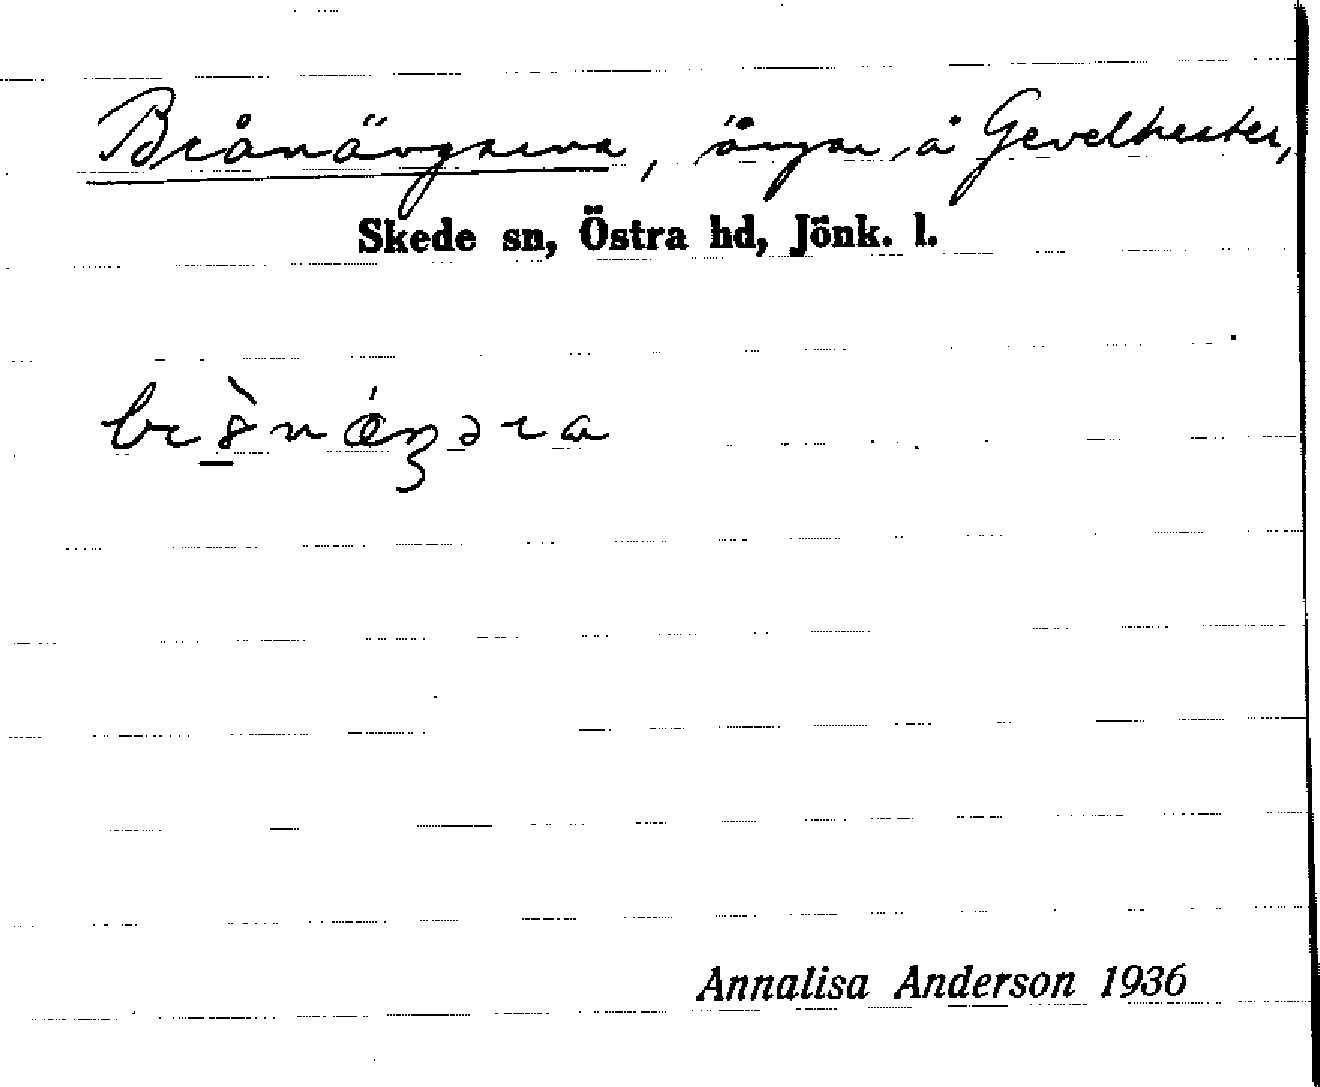 Brånängarna, ängar å Gevelhester,
Skede sn, Östra hd, Jönk. l.
Annalisa Anderson 1936